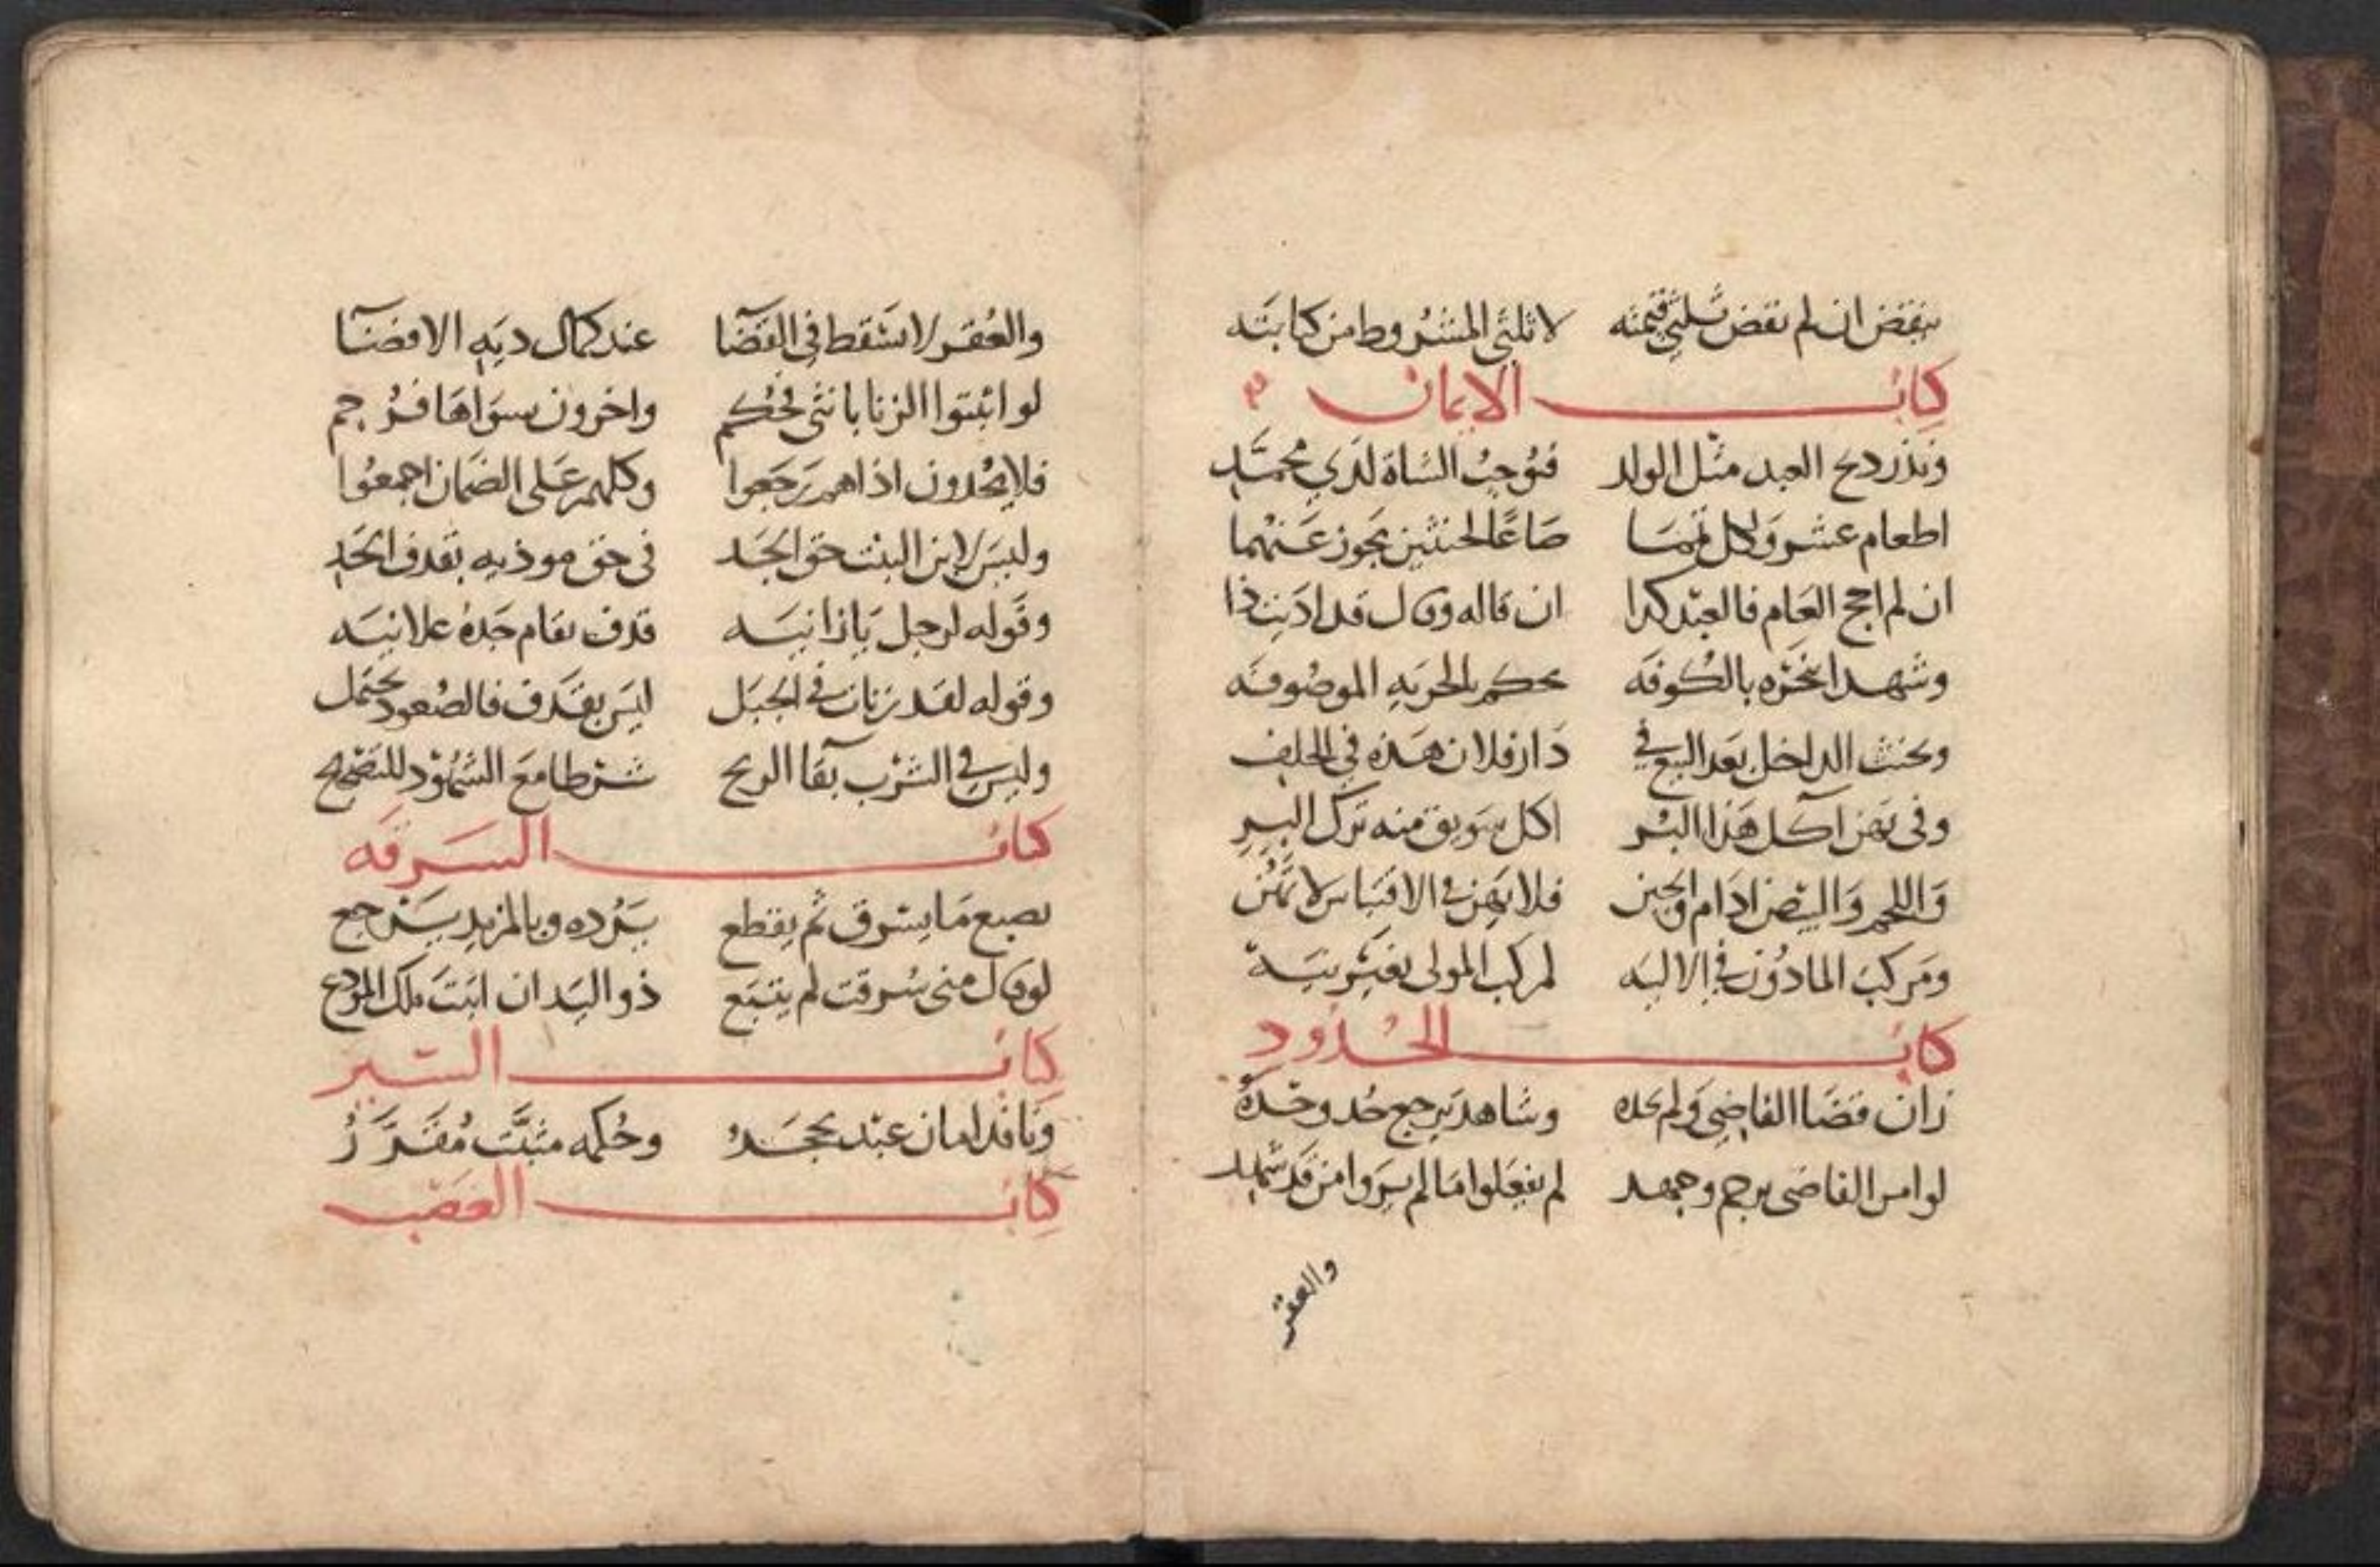 ينقض ان لم نقض ثلثي قيمته لا ثلثي المشروط من كتابته
كتاب الايمان
ونذر ذبح العبد مثل الولد فتوجب الشاة لدي محمد
اطعام عشر وكل قسما صاعا لحنثين يجوز عنهما
ان لم احج العام فالعبد كذا ان قاله وقال قد اديت ذا
وشهدا بنحره بالكوفه يحكم بالحريه الموصوفه
ويحنث الداخل بعد البيع في دار فلان هذه في الحلف
وفي يمين اكل هذا البسر اكل سويق منه ترك البر
واللحم والبيض ادام والجبن فلا يمين في الاقتباس لا تمن
ومركب الماذون في الاليه لمركب المولى بغير نيه
كتاب الحدود
زان قضا القاضي ولم يحده وشاهد يرجع حد وحده
لو امر القاضي برجم وجهد لم يفعلوا ما لم يروا من قد شهد
والعقر
والعقر لا يسقط في القضا عند كمال ديه الافضا
لو اثبتوا الزنا بانثى فحكم واخرون بسواها فرجم
فلا يحدون اذا هم رجعوا وكلهم على الضمان اجمعوا
وليس لابن البنت حق الجد في حق موذيه بقذف الحد
وقوله لرجل يا زانيه قذف يقام حده علانيه
وقوله لقد زنات في الجبل ليس بقذف فالصعود يحتمل
وليس في الشرب بقا الريح شرطا مع الشهود للتصحيح
كتاب السرقه
يصبغ ما يسرق ثم يقطع يرده وبالمزيد يرجع
لو قال مني سرقت لم يتبع ذو اليد ان اثبت ملك المودع
كتاب السير
ونافذ امان عبد يحجر وحكمه مثبت مقرر
كتاب الغصب